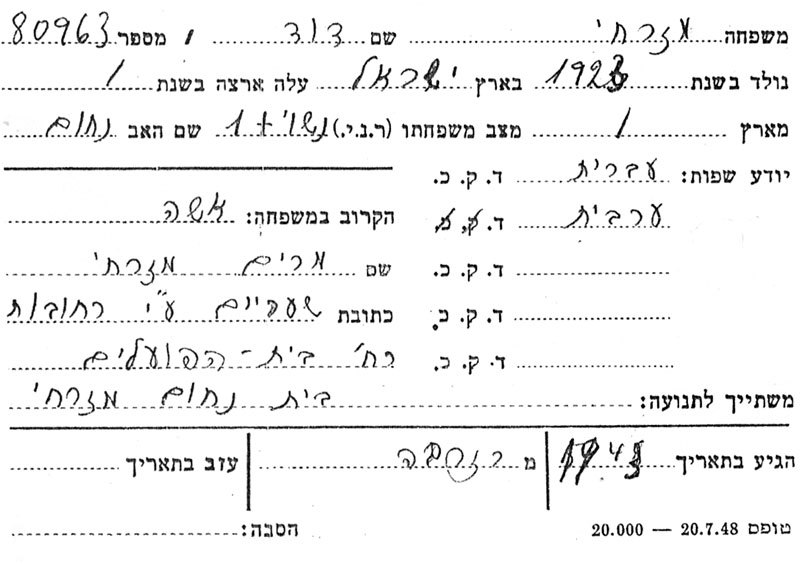 משפחה מזרחי שם דוד מספר 80963
נולד בשנת 1923 בארץ ישראל עלה ארצה בשנת /
מארץ / מצב משפחתו (ר.נ.י.) נשוי + 1 שם האב נחום
יודע שפות: עברית ד. ק. כ.
ערבית ד. ק. כ.
ד. ק. כ.
ד. ק. כ.
ד. ק. כ.
הקרוב במשפחה: אשה
שם מרים מזרחי
כתובת שעריים ע"י רחובות
רח' בית - הפועלים
משתייך לתנועה: בית נחום מזרחי
הגיע בתאריך מ עזב בתאריך
טופס 20.7.48 — 20.000 הסבה: